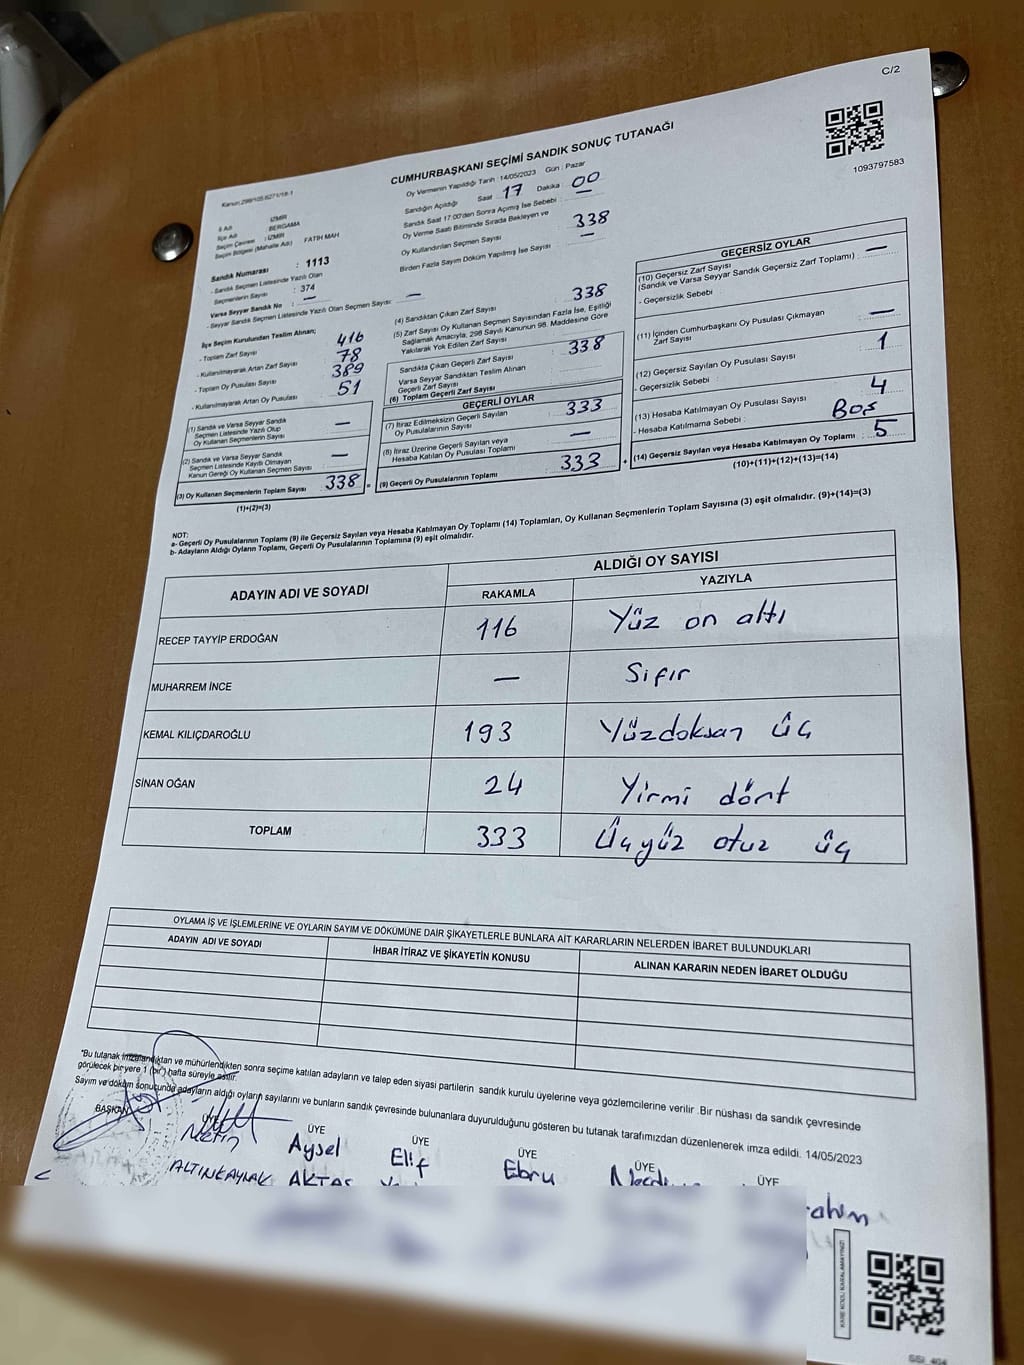 C/2
CUMHURBAŞKANI SEÇİMİ SANDIK SONUÇ TUTANAĞI
1093797583
Oy Vermenin Yapıldığı Tarih : 14/05/2023 Gün : Pazar
Sandığın Açıldığı Saat 17 Dakika 00
Sandık Saat 17:00'den Sonra Açılmış İse Sebebi : —
Oy Verme Saati Bitiminde Sırada Bekleyen ve
Oy Kullandırılan Seçmen Sayısı 338
Birden Fazla Sayım Döküm Yapılmış İse Sayısı —
İl Adı : İZMİR
İlçe Adı : BERGAMA
Seçim Çevresi : İZMİR
Seçim Bölgesi (Mahalle Adı) : FATİH MAH
Sandık Numarası : 1113
- Sandık Seçmen Listesinde Yazılı Olan
Seçmenlerin Sayısı : 374
Varsa Seyyar Sandık No : —
- Seyyar Sandık Seçmen Listesinde Yazılı Olan Seçmen Sayısı: —
İlçe Seçim Kurulundan Teslim Alınan;
- Toplam Zarf Sayısı 416
- Kullanılmayarak Artan Zarf Sayısı 78
- Toplam Oy Pusulası Sayısı 389
- Kullanılmayarak Artan Oy Pusulası 51
(1) Sandık ve Varsa Seyyar Sandık
Seçmen Listesinde Yazılı Olup
Oy Kullanan Seçmenlerin Sayısı —
(2) Sandık ve Varsa Seyyar Sandık
Seçmen Listesinde Kayıtlı Olmayan
Kanun Gereği Oy Kullanan Seçmen Sayısı —
(3) Oy Kullanan Seçmenlerin Toplam Sayısı 338
(1)+(2)=(3)
(4) Sandıktan Çıkan Zarf Sayısı 338
(5) Zarf Sayısı Oy Kullanan Seçmen Sayısından Fazla İse, Eşitliği
Sağlamak Amacıyla, 298 Sayılı Kanunun 98. Maddesine Göre
Yakılarak Yok Edilen Zarf Sayısı —
Sandıkta Çıkan Geçerli Zarf Sayısı 338
Varsa Seyyar Sandıktan Teslim Alınan
Geçerli Zarf Sayısı
(6) Toplam Geçerli Zarf Sayısı
GEÇERLİ OYLAR
(7) İtiraz Edilmeksizin Geçerli Sayılan
Oy Pusulalarının Sayısı 333
(8) İtiraz Üzerine Geçerli Sayılan veya
Hesaba Katılan Oy Pusulası Toplamı —
(9) Geçerli Oy Pusulalarının Toplamı 333
GEÇERSİZ OYLAR
(10) Geçersiz Zarf Sayısı
(Sandık ve Varsa Seyyar Sandık Geçersiz Zarf Toplamı) : —
- Geçersizlik Sebebi :
(11) İçinden Cumhurbaşkanı Oy Pusulası Çıkmayan
Zarf Sayısı —
(12) Geçersiz Sayılan Oy Pusulası Sayısı 1
- Geçersizlik Sebebi :
(13) Hesaba Katılmayan Oy Pusulası Sayısı 4
- Hesaba Katılmama Sebebi : Boş
(14) Geçersiz Sayılan veya Hesaba Katılmayan Oy Toplamı : 5
(10)+(11)+(12)+(13)=(14)
NOT:
a- Geçerli Oy Pusulalarının Toplamı (9) ile Geçersiz Sayılan veya Hesaba Katılmayan Oy Toplamı (14) Toplamları, Oy Kullanan Seçmenlerin Toplam Sayısına (3) eşit olmalıdır. (9)+(14)=(3)
b- Adayların Aldığı Oyların Toplamı, Geçerli Oy Pusulalarının Toplamına (9) eşit olmalıdır.
ADAYIN ADI VE SOYADI ALDIĞI OY SAYISI
RAKAMLA YAZIYLA
RECEP TAYYİP ERDOĞAN 116 Yüz on altı
MUHARREM İNCE — Sıfır
KEMAL KILIÇDAROĞLU 193 Yüzdoksan üç
SİNAN OĞAN 24 Yirmi dört
TOPLAM 333 Üçyüz otuz üç
OYLAMA İŞ VE İŞLEMLERİNE VE OYLARIN SAYIM VE DÖKÜMÜNE DAİR ŞİKAYETLERLE BUNLARA AİT KARARLARIN NELERDEN İBARET BULUNDUKLARI
ADAYIN ADI VE SOYADI İHBAR İTİRAZ VE ŞİKAYETİN KONUSU ALINAN KARARIN NEDEN İBARET OLDUĞU
"Bu tutanak imzalandıktan ve mühürlendikten sonra seçime katılan adayların ve talep eden siyasi partilerin sandık kurulu üyelerine veya gözlemcilerine verilir .Bir nüshası da sandık çevresinde
görülecek bir yere 1 (bir) hafta süreyle asılır.
Sayım ve döküm sonucunda adayların aldığı oyların sayılarını ve bunların sandık çevresinde bulunanlara duyurulduğunu gösteren bu tutanak tarafımızdan düzenlenerek imza edildi. 14/05/2023
BAŞKAN ÜYE ÜYE ÜYE ÜYE ÜYE ÜYE
Metin Aysel Elif Ebru
ALTINKAYNAK AKTAŞ
KARE KODU KARALAMAYINIZ!